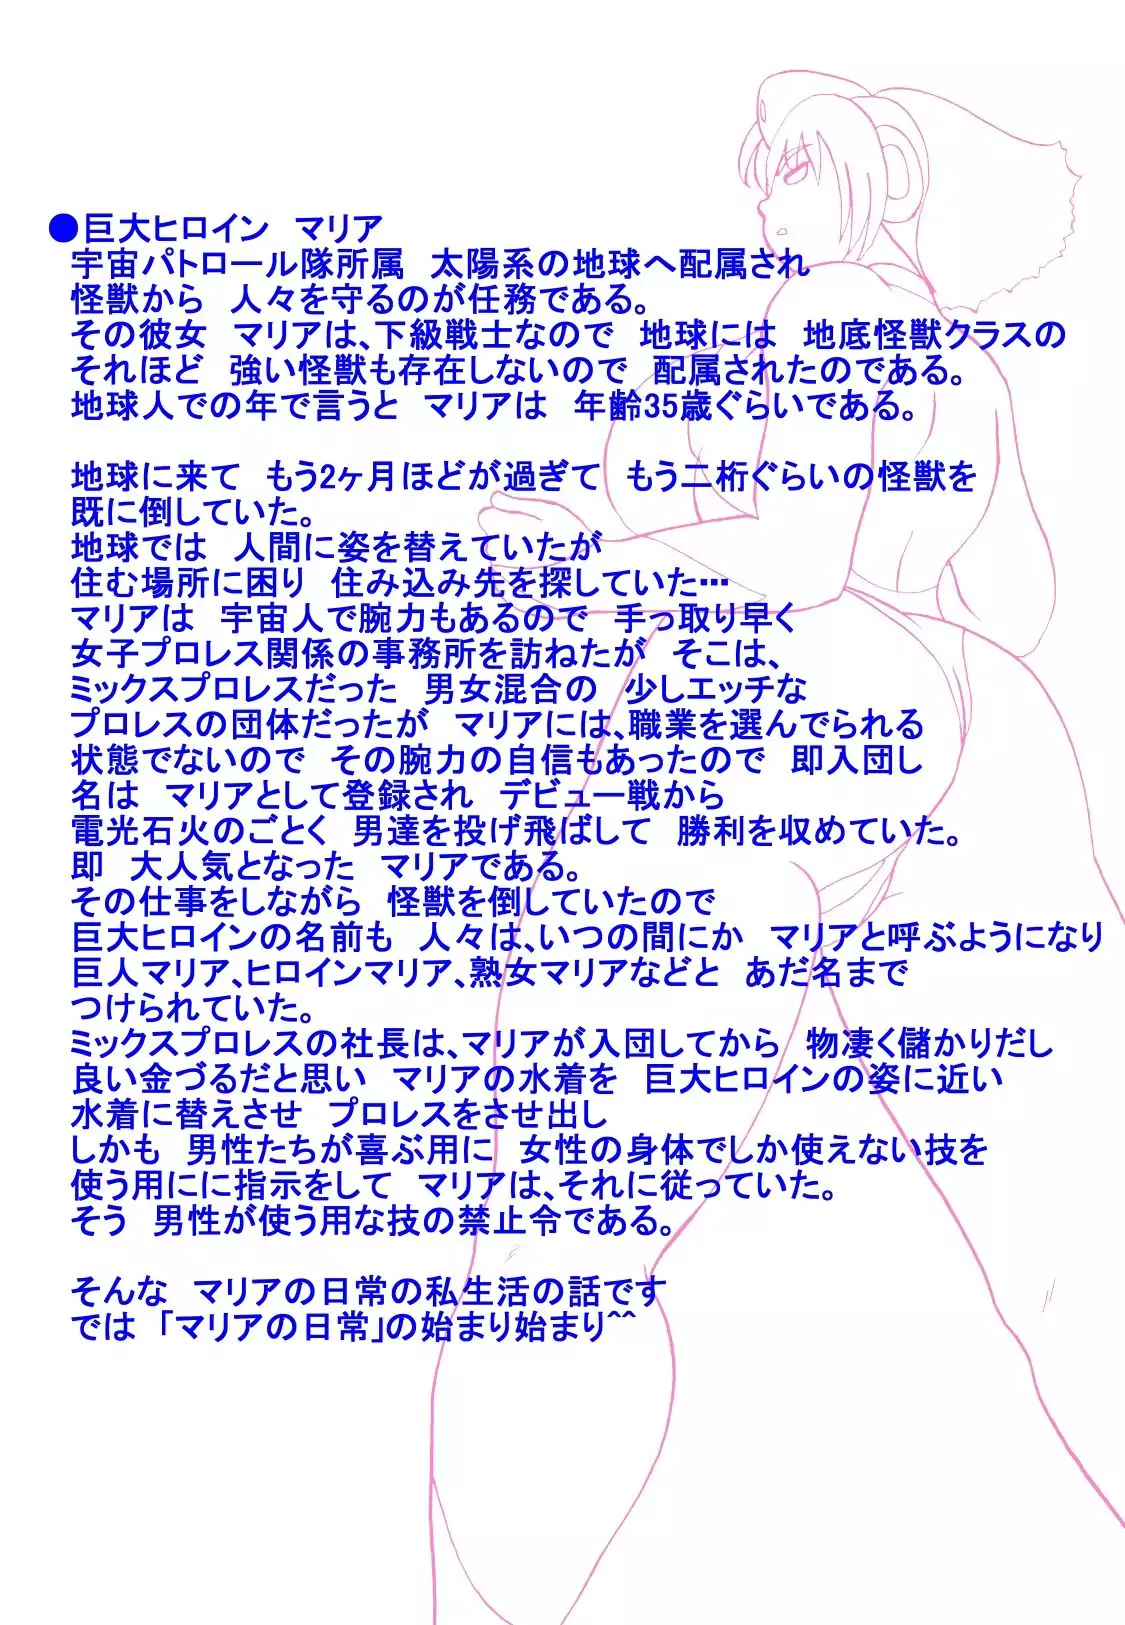 ●巨大ヒロイン　マリア
宇宙パトロール隊所属　太陽系の地球へ配属され
怪獣から　人々を守るのが任務である。
その彼女　マリアは、下級戦士なので　地球には　地底怪獣クラスの
それほど　強い怪獣も存在しないので　配属されたのである。
地球人での年で言うと　マリアは　年齢35歳ぐらいである。

地球に来て　もう2ヶ月ほどが過ぎて　もう二桁ぐらいの怪獣を
既に倒していた。
地球では　人間に姿を替えていたが
住む場所に困り　住み込み先を探していた…
マリアは　宇宙人で腕力もあるので　手っ取り早く
女子プロレス関係の事務所を訪ねたが　そこは、
ミックスプロレスだった　男女混合の　少しエッチな
プロレスの団体だったが　マリアには、職業を選んでられる
状態でないので　その腕力の自信もあったので　即入団し
名は　マリアとして登録され　デビュー戦から
電光石火のごとく　男達を投げ飛ばして　勝利を収めていた。
即　大人気となった　マリアである。
その仕事をしながら　怪獣を倒していたので
巨大ヒロインの名前も　人々は、いつの間にか　マリアと呼ぶようになり
巨人マリア、ヒロインマリア、熟女マリアなどと　あだ名まで
つけられていた。
ミックスプロレスの社長は、マリアが入団してから　物凄く儲かりだし
良い金づるだと思い　マリアの水着を　巨大ヒロインの姿に近い
水着に替えさせ　プロレスをさせ出し
しかも　男性たちが喜ぶ用に　女性の身体でしか使えない技を
使う用にに指示をして　マリアは、それに従っていた。
そう　男性が使う用な技の禁止令である。

そんな　マリアの日常の私生活の話です
では　「マリアの日常」の始まり始まり^^